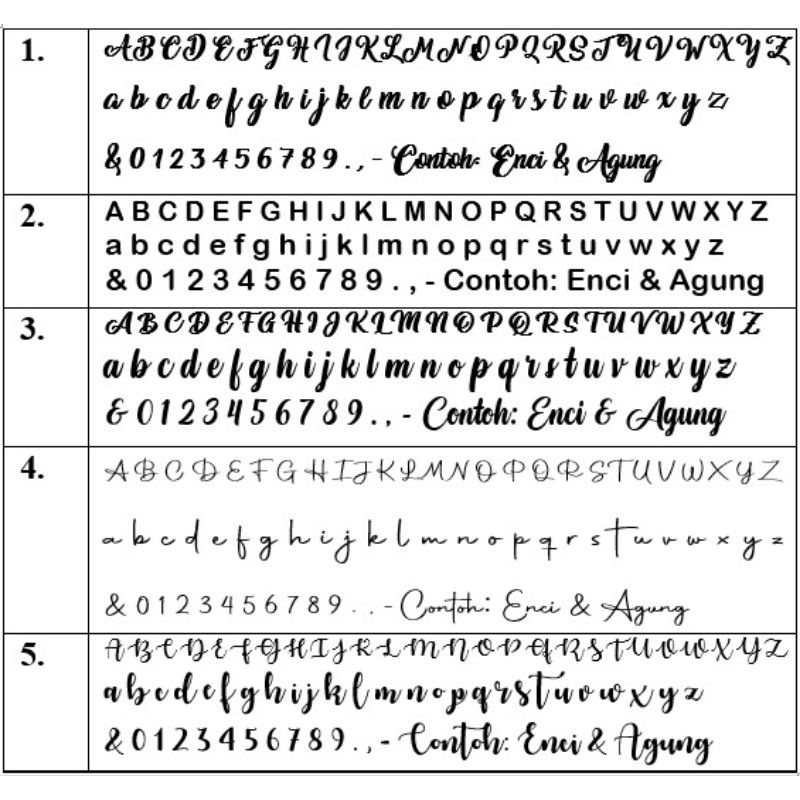 1.
A B C D E F G H I J K L M N O P Q R S T U V W X Y Z
a b c d e f g h i j k l m n o p q r s t u v w x y z
& 0 1 2 3 4 5 6 7 8 9 . , - Contoh: Enci & Agung
2.
A B C D E F G H I J K L M N O P Q R S T U V W X Y Z
a b c d e f g h i j k l m n o p q r s t u v w x y z
& 0 1 2 3 4 5 6 7 8 9 . , - Contoh: Enci & Agung
3.
A B C D E F G H I J K L M N O P Q R S T U V W X Y Z
a b c d e f g h i j k l m n o p q r s t u v w x y z
& 0 1 2 3 4 5 6 7 8 9 . , - Contoh: Enci & Agung
4.
A B C D E F G H I J K L M N O P Q R S T U V W X Y Z
a b c d e f g h i j k l m n o p q r s t u v w x y z
& 0 1 2 3 4 5 6 7 8 9 . , - Contoh: Enci & Agung
5.
A B C D E F G H I J K L M N O P Q R S T U V W X Y Z
a b c d e f g h i j k l m n o p q r s t u v w x y z
& 0 1 2 3 4 5 6 7 8 9 . , - Contoh: Enci & Agung